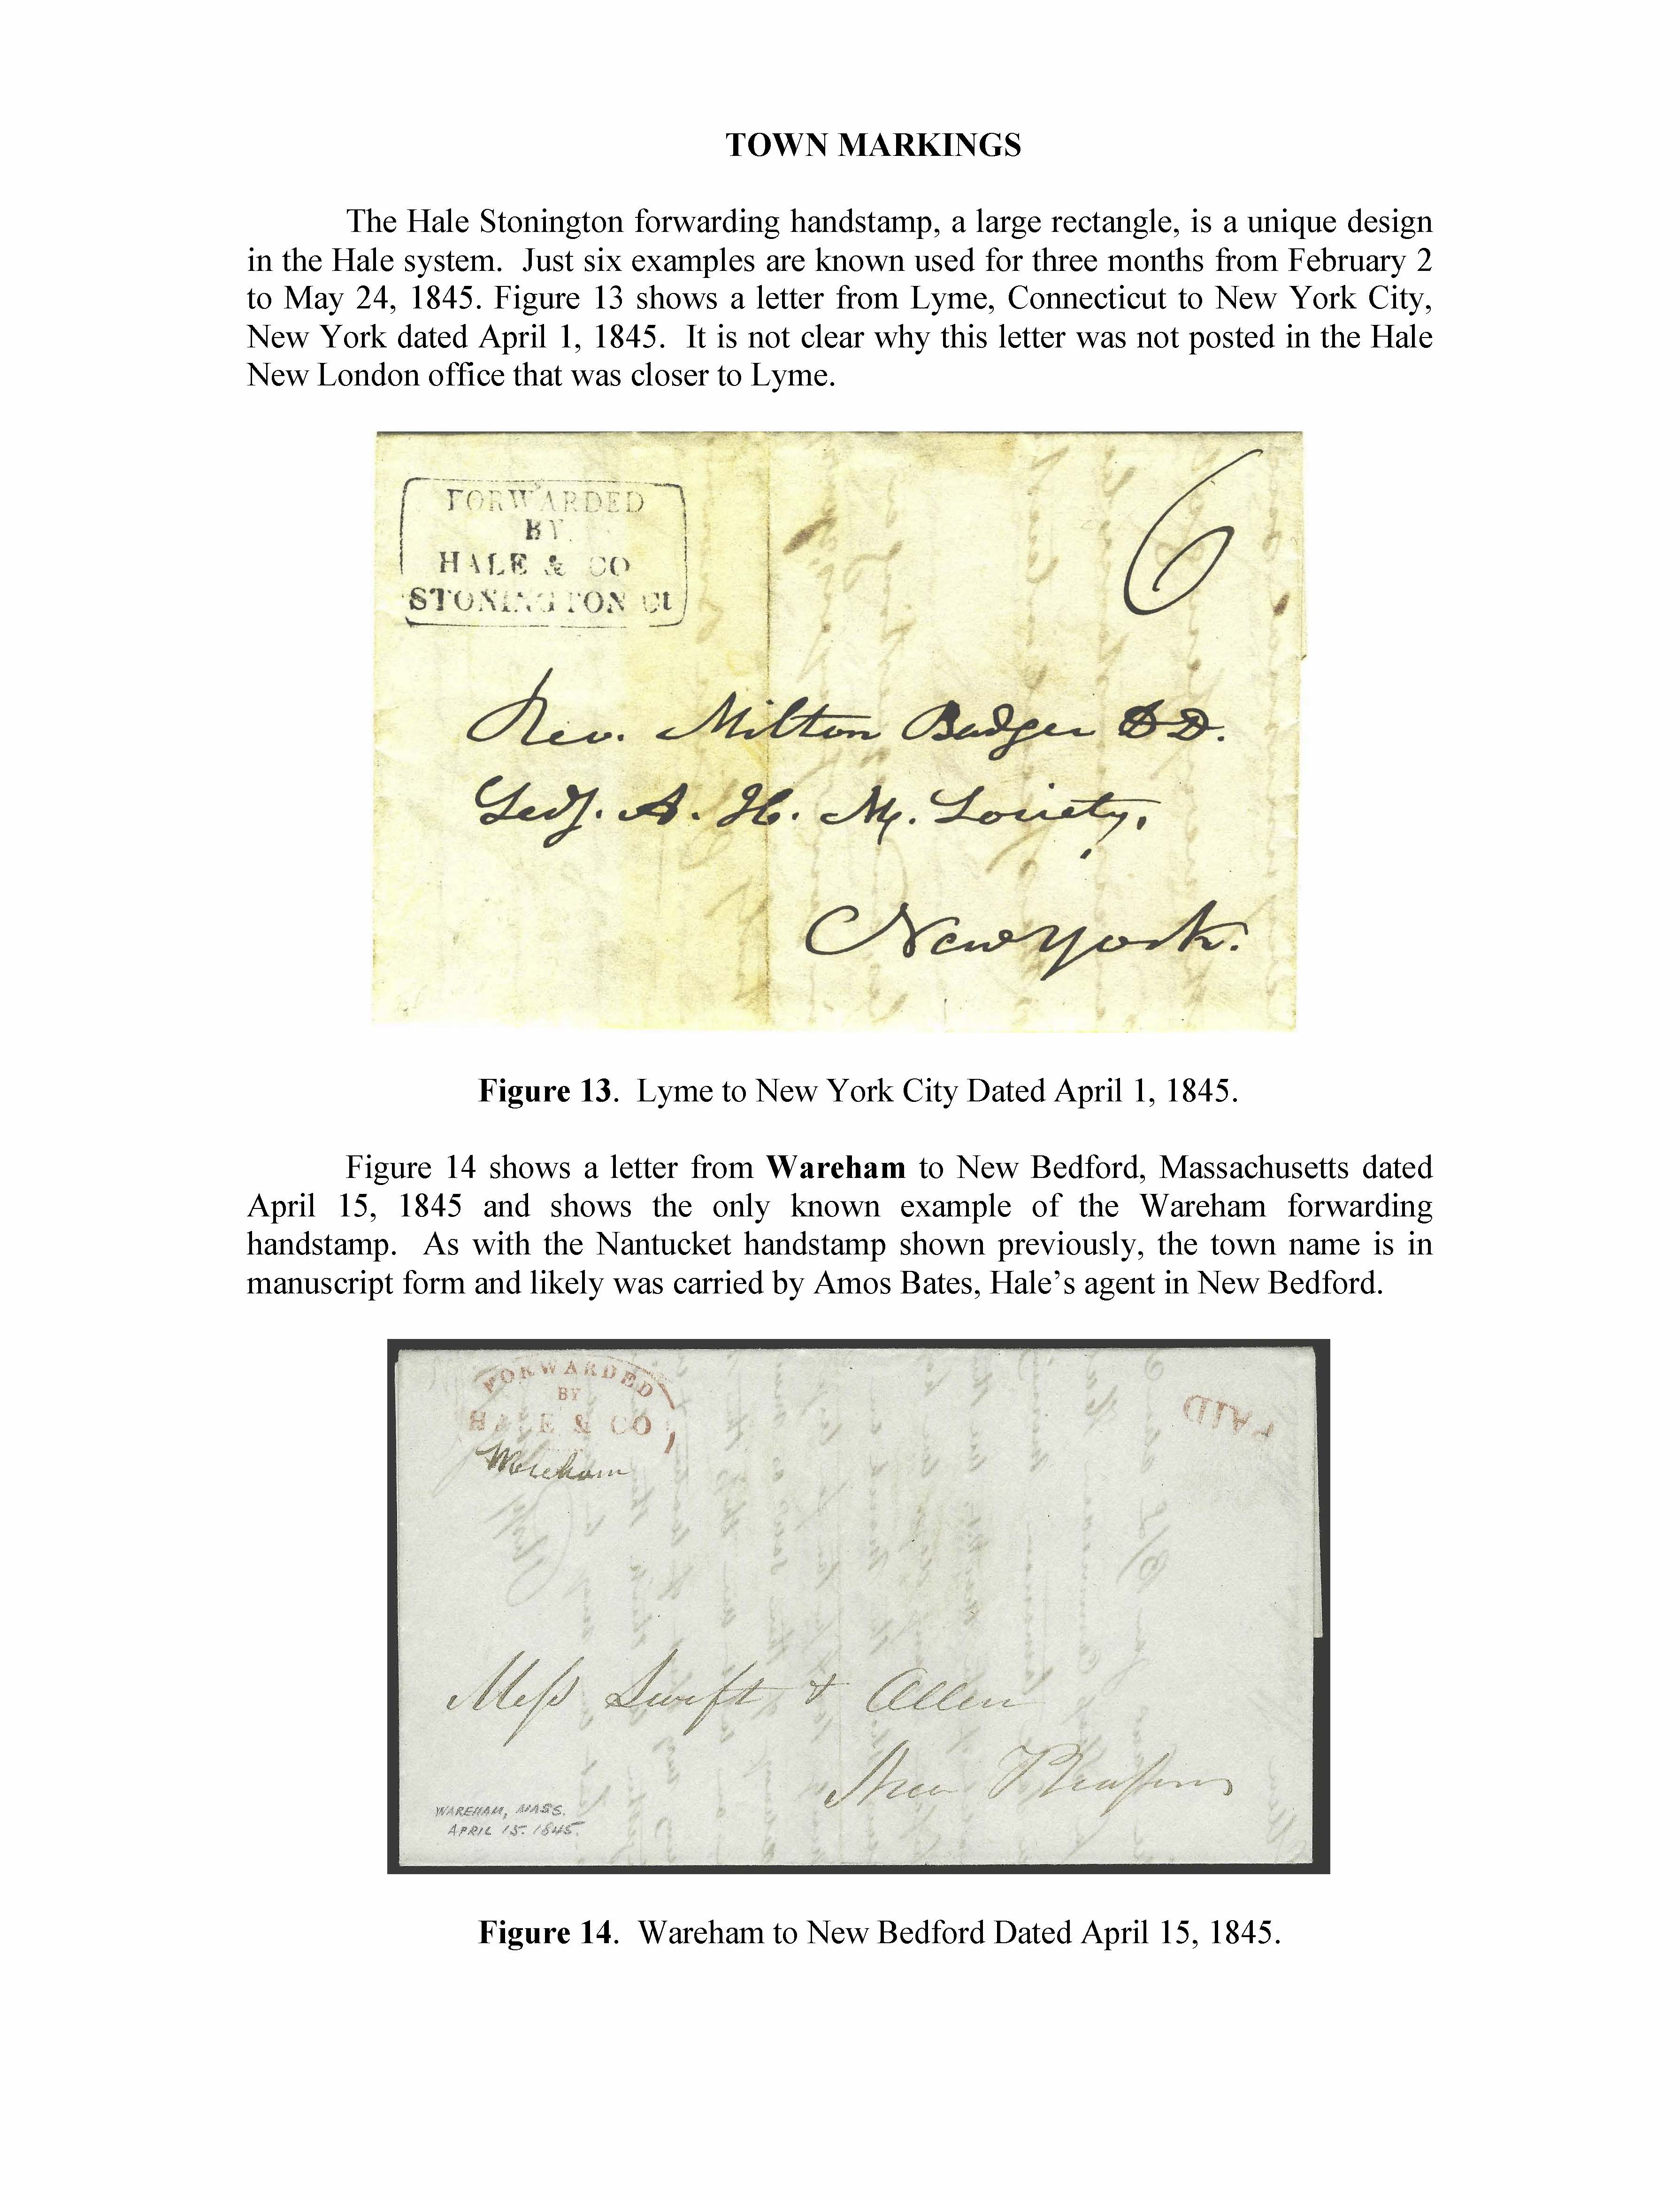 TOWN MARKINGS
The Hale Stonington forwarding handstamp, a large rectangle, is a unique design
in the Hale system. Just six examples are known used for three months from February 2
to May 24, 1845. Figure 13 shows a letter from Lyme, Connecticut to New York City,
New York dated April 1, 1845. It is not clear why this letter was not posted in the Hale
New London office that was closer to Lyme.
FORWARDED
BY
HALE & CO
STONINGTON Ct
6
Rev. Milton Badger D D.
Secy. A. H. M. Society,
New York.
Figure 13. Lyme to New York City Dated April 1, 1845.
Figure 14 shows a letter from Wareham to New Bedford, Massachusetts dated
April 15, 1845 and shows the only known example of the Wareham forwarding
handstamp. As with the Nantucket handstamp shown previously, the town name is in
manuscript form and likely was carried by Amos Bates, Hale's agent in New Bedford.
FORWARDED
BY
HALE & CO
Wareham
PAID
Mess Swift & Allen
New Bedford
WAREHAM, MASS.
APRIL 15. 1845.
Figure 14. Wareham to New Bedford Dated April 15, 1845.